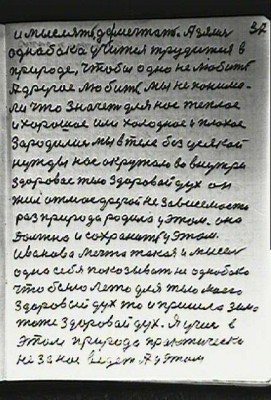 32
и мыслят, да мечтат. А зимы
одна бока учится трудится в
природе, чтобы одно не любить
а другое любить мы не понимо-
ли что значет для нас теплое
и хорошое или холодное и плохое
Зародились мы в теле без усякой
нужды нас окружало во внутри
здоровае тело здоровай дух он
жил атмосферой не зависемости
раз природа родила у этом. она
должна и сохранить у этом.
Иванова мечта такая и мысель
одно себя показывать не однобоко
что было лето для тилового
здоровай дух то и пришла зима
тоже здоровай дух. Я учус в
этом природа практически
не за нос ведет а у этом